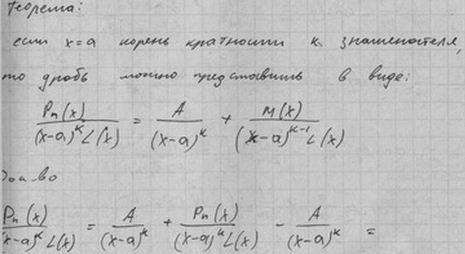 Теорема:
если x=a корень кратности k знаменателя,
то дробь можно представить в виде:
Pn(x)/((x-a)^k L(x)) = A/(x-a)^k + M(x)/((x-a)^(k-1) L(x))
Док-во
Pn(x)/((x-a)^k L(x)) = A/(x-a)^k + Pn(x)/((x-a)^k L(x)) - A/(x-a)^k =